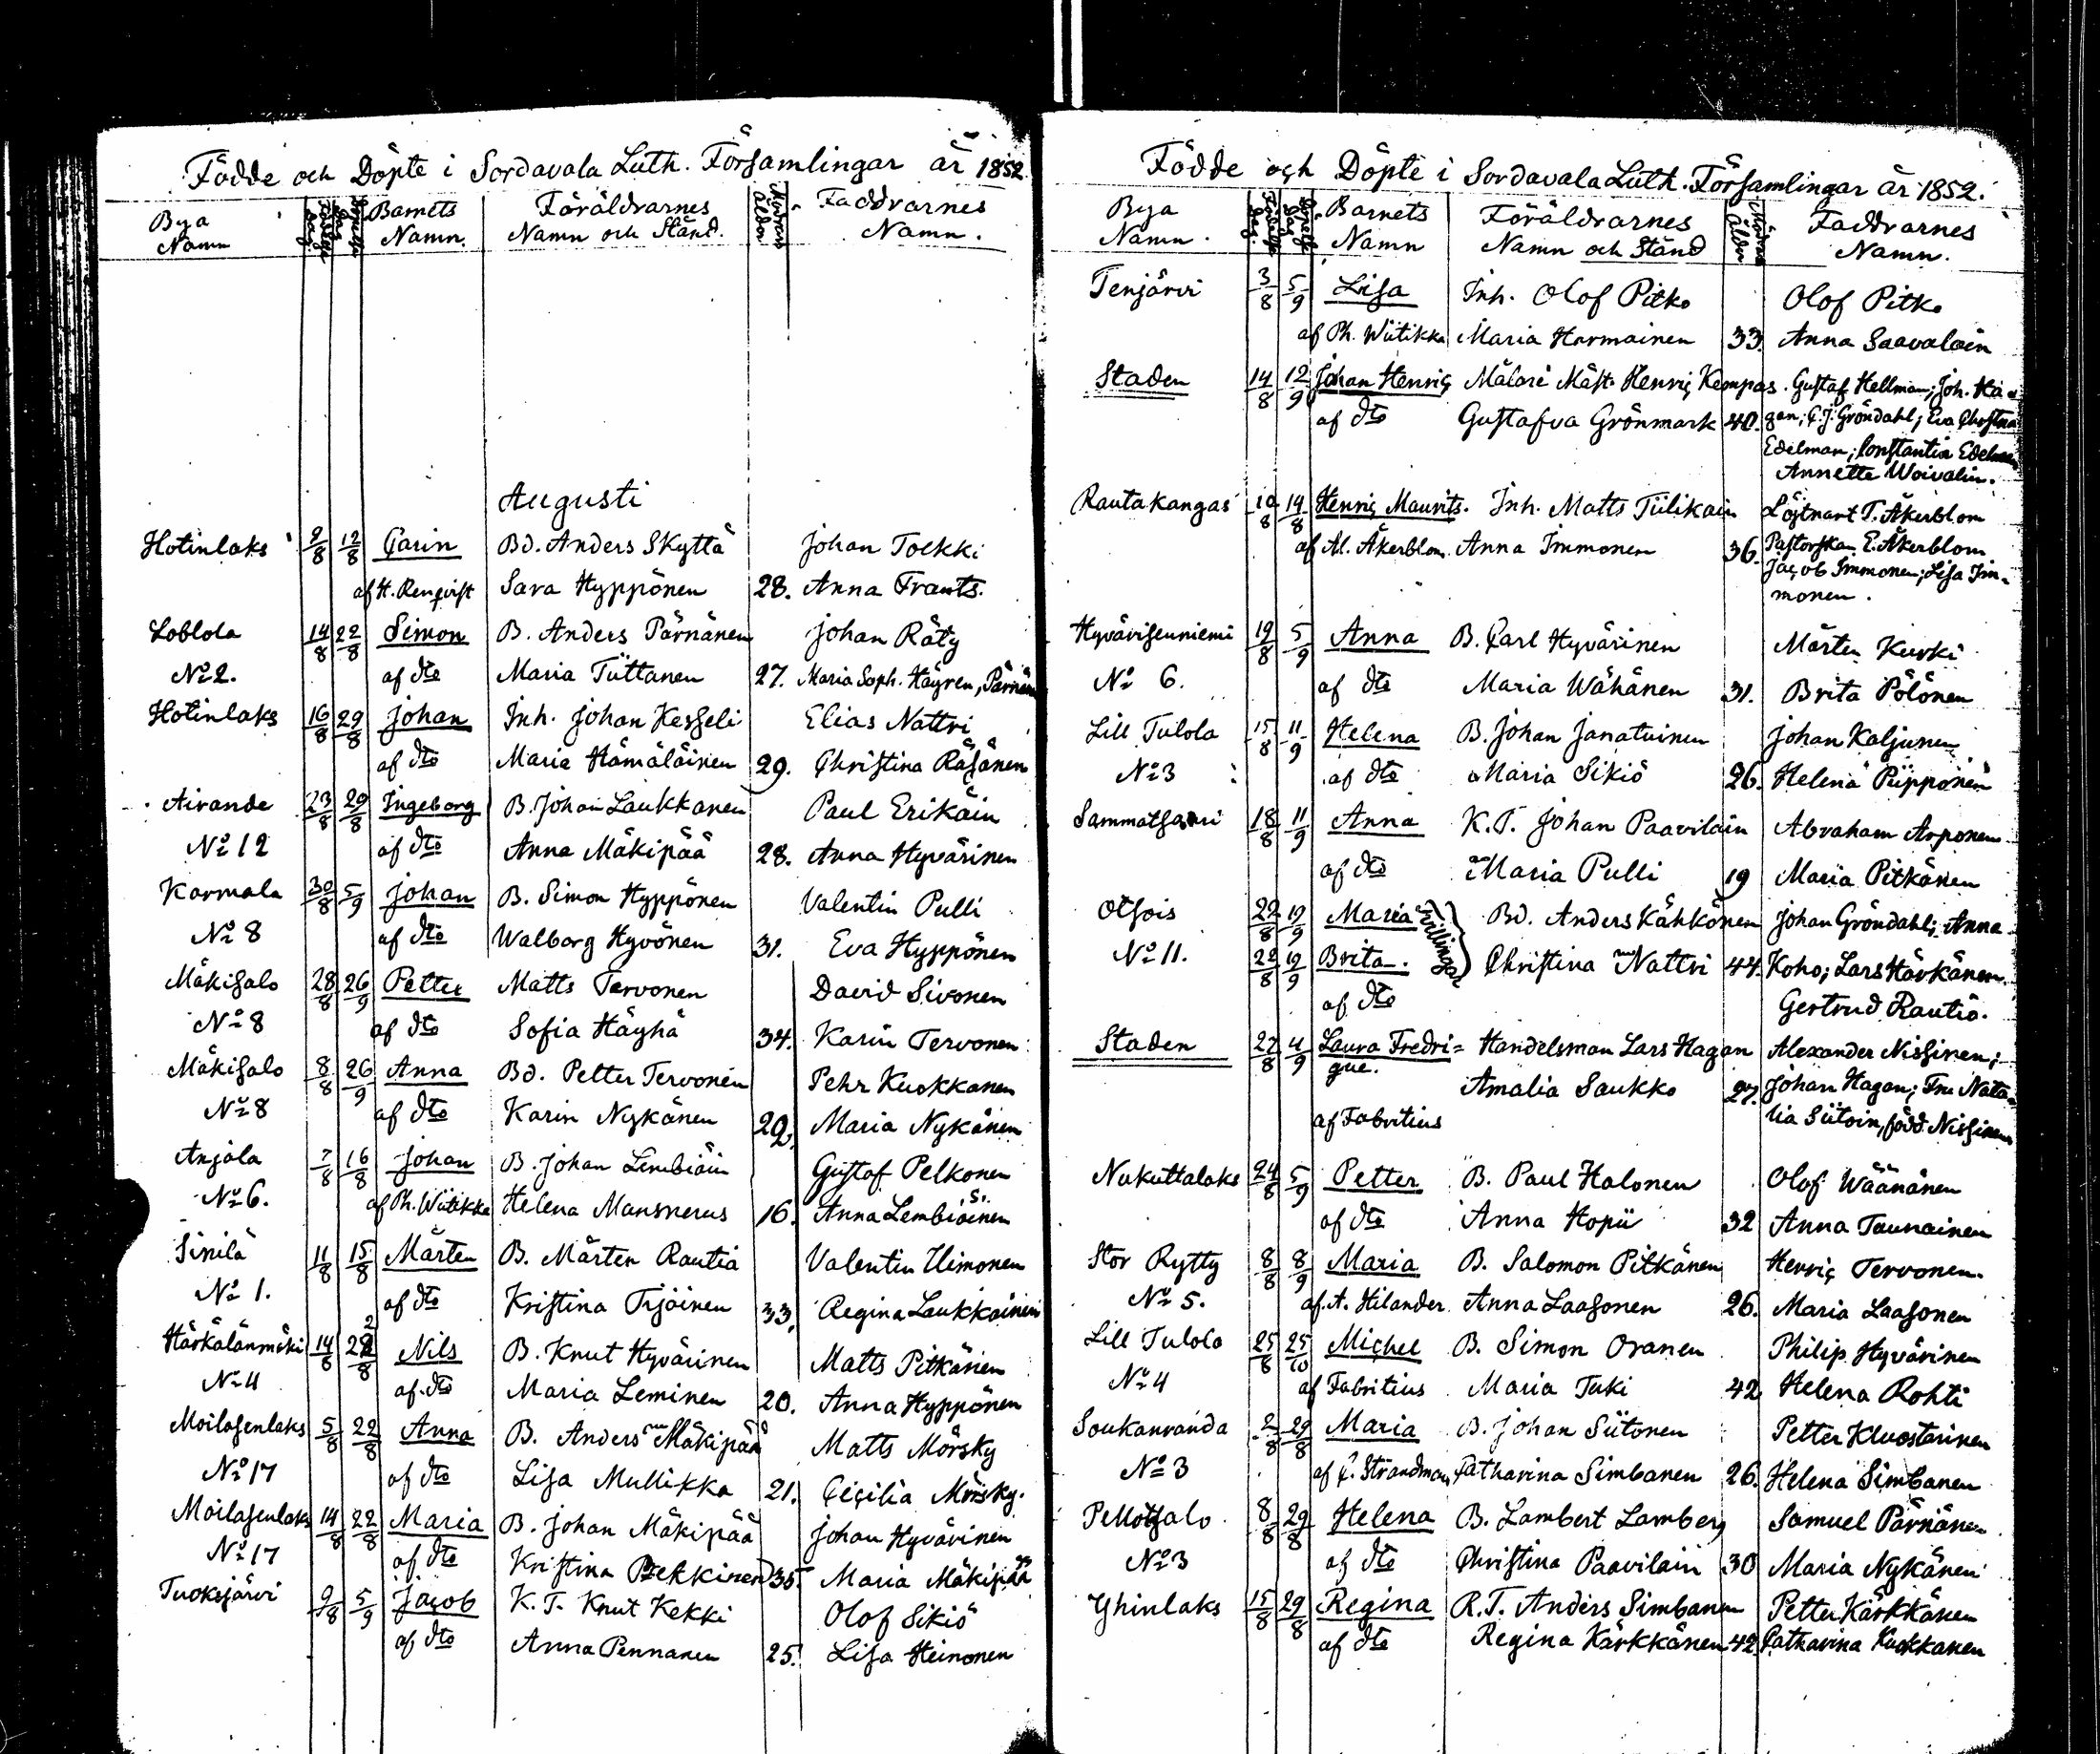 Födde och Döpte i Sordavala Luth. Församlingar år 1852.
Bya Namn | Födelse Dag | Döpelse Dag | Barnets Namn. | Föräldrarnes Namn och Stånd. | Modrens Ålder | Faddrarnes Namn.
Augusti
Hotinlaks 9/8 12/8 Carin Bd. Anders Skyttä Johan Toekki
af H. Renqvist Sara Hyppönen 28. Anna Frants.
Loblola 14/8 22/8 Simon B. Anders Pärnänen Johan Räty
No 2. af dto Maria Tüttanen 27. Maria Soph. Häyren,
Hotinlaks 16/8 29/8 Johan Inh. Johan Kesseli Elias Nattri
af dto Maria Hämäläinen 29. Christina Räsänen
Airande 23/8 29/8 Ingeborg B. Johan Laukkanen Paul Erikäin
No 12 af dto Anna Mäkipää 28. Anna Hyvärinen
Karmala 30/8 5/9 Johan B. Simon Hyppönen Valentin Pulli
No 8 af dto Walborg Hyvönen 31. Eva Hyppönen
Mäkisalo 28/8 26/9 Petter Matts Tervonen David Sivonen
No 8 af dto Sofia Häyhä 34. Karin Tervonen
Mäkisalo 8/8 26/9 Anna Bd. Petter Tervonen Pehr Kuokkanen
No 8 af dto Karin Nykänen 29. Maria Nykänen
Anjala 7/8 16/8 Johan B. Johan Lembiäin Gustaf Pelkonen
No 6. af Ph. Wiitikka Helena Mansnerus 16. Anna Lembiäinen
Sinilä 11/8 15/8 Mårten B. Mårten Rautia Valentin Ilimonen
No 1. af dto Kristina Tijäinen 33. Regina Laukkainen
Härkälänmäki 14/8 22/8 Nils B. Knut Hyvärinen Matts Pitkänen
No 4 af dto Maria Leminen 20. Anna Hyppönen
Moilasenlaks 5/8 22/8 Anna B. Anders Mäkipää Matts Mörsky
No 17 af dto Lisa Mullikka 21. Cicilia Mörsky.
Moilasenlaks 14/8 22/8 Maria B. Johan Mäkipää Johan Hyvärinen
No 17 af dto Kristina Pekkinen 35. Maria Mäkipää
Tuoksjärvi 9/8 5/9 Jacob K.T. Knut Kekki Olof Sikiö
af dto Anna Pennanen 25. Lisa Heinonen
Födde och Döpte i Sordavala Luth. Församlingar år 1852.
Bya Namn. | Födelse Dag. | Döpelse Dag | Barnets Namn | Föräldrarnes Namn och Stånd | Modrens Ålder | Faddrarnes Namn.
Tenjärvi 3/8 5/9 Lisa Inh. Olof Pitko Olof Pitko
af Ph. Wiitikka Maria Harmainen 33. Anna Saavalain
Staden 14/8 12/9 Johan Henric Målare Mäst. Henric Kempas. Gustaf Hellman; Joh. Ha-
af dto Gustafva Grönmark 40. gan; C.J. Gröndahl; Eva Christina
Edelman; Constantia Edelman
Annette Woivalin.
Rautakangas 10/8 14/8 Henric Maurits. Inh. Matts Tiilikain Löjtnant T. Åkerblom
af Al. Åkerblom Anna Immonen 36. Pastorskan E. Åkerblom
Jacob Immonen; Lisa Im-
monen.
Hyvärisenniemi 19/8 5/9 Anna B. Carl Hyvärinen Mårten Kurki
No 6. af dto Maria Wähänen 31. Brita Pölönen
Lill Tulola 15/8 11/9 Helena B. Johan Janatuinen Johan Kaljunen
No 3 af dto Maria Sikiö 26. Helena Piipponen
Sammatsaari 18/8 11/9 Anna K.T. Johan Paavilain Abraham Arponen
af dto Maria Pulli 19 Maria Pitkänen
Otsois 22/8 19/9 Maria Tvillingar Bd. Anders Kähkönen Johan Gröndahl; Anna
No 11. 22/8 19/9 Brita. Christina Nattri 44. Koho; Lars Härkänen.
af dto Gertrud Rautio.
Staden 22/8 4/9 Laura Fredri= Handelsman Lars Hagan Alexander Nissinen;
que. Amalia Saukko 27. Johan Hagan; Fru Nata-
af Fabritius lia Siitoin, född Nissinen
Nukuttalaks 24/8 5/9 Petter B. Paul Halonen Olof Wäänänen
af dto Anna Hopii 32 Anna Taunainen
Stor Rytty 8/8 8/9 Maria B. Salomon Pitkänen Henric Tervonen.
No 5. af. A. Hilander Anna Laasonen 26. Maria Laasonen
Lill Tulola 25/8 25/10 Michel B. Simon Oranen Philip Hyvärinen
No 4 af Fabritius Maria Tuki 42 Helena Rohti
Soukanranda 2/8 29/8 Maria B. Johan Siitonen Petter Kluostarinen
No 3 af C. Strandman Catharina Simbanen 26. Helena Simbanen
Pellotsalo 8/8 29/8 Helena B. Lambert Lamberg Samuel Pärnänen
No 3 af dto Christina Paavilain 30 Maria Nykänen
Yhinlaks 15/8 29/8 Regina R.T. Anders Simbanen Petter Kärkkänen
af dto Regina Kärkkänen 42. Catharina Kuokkanen